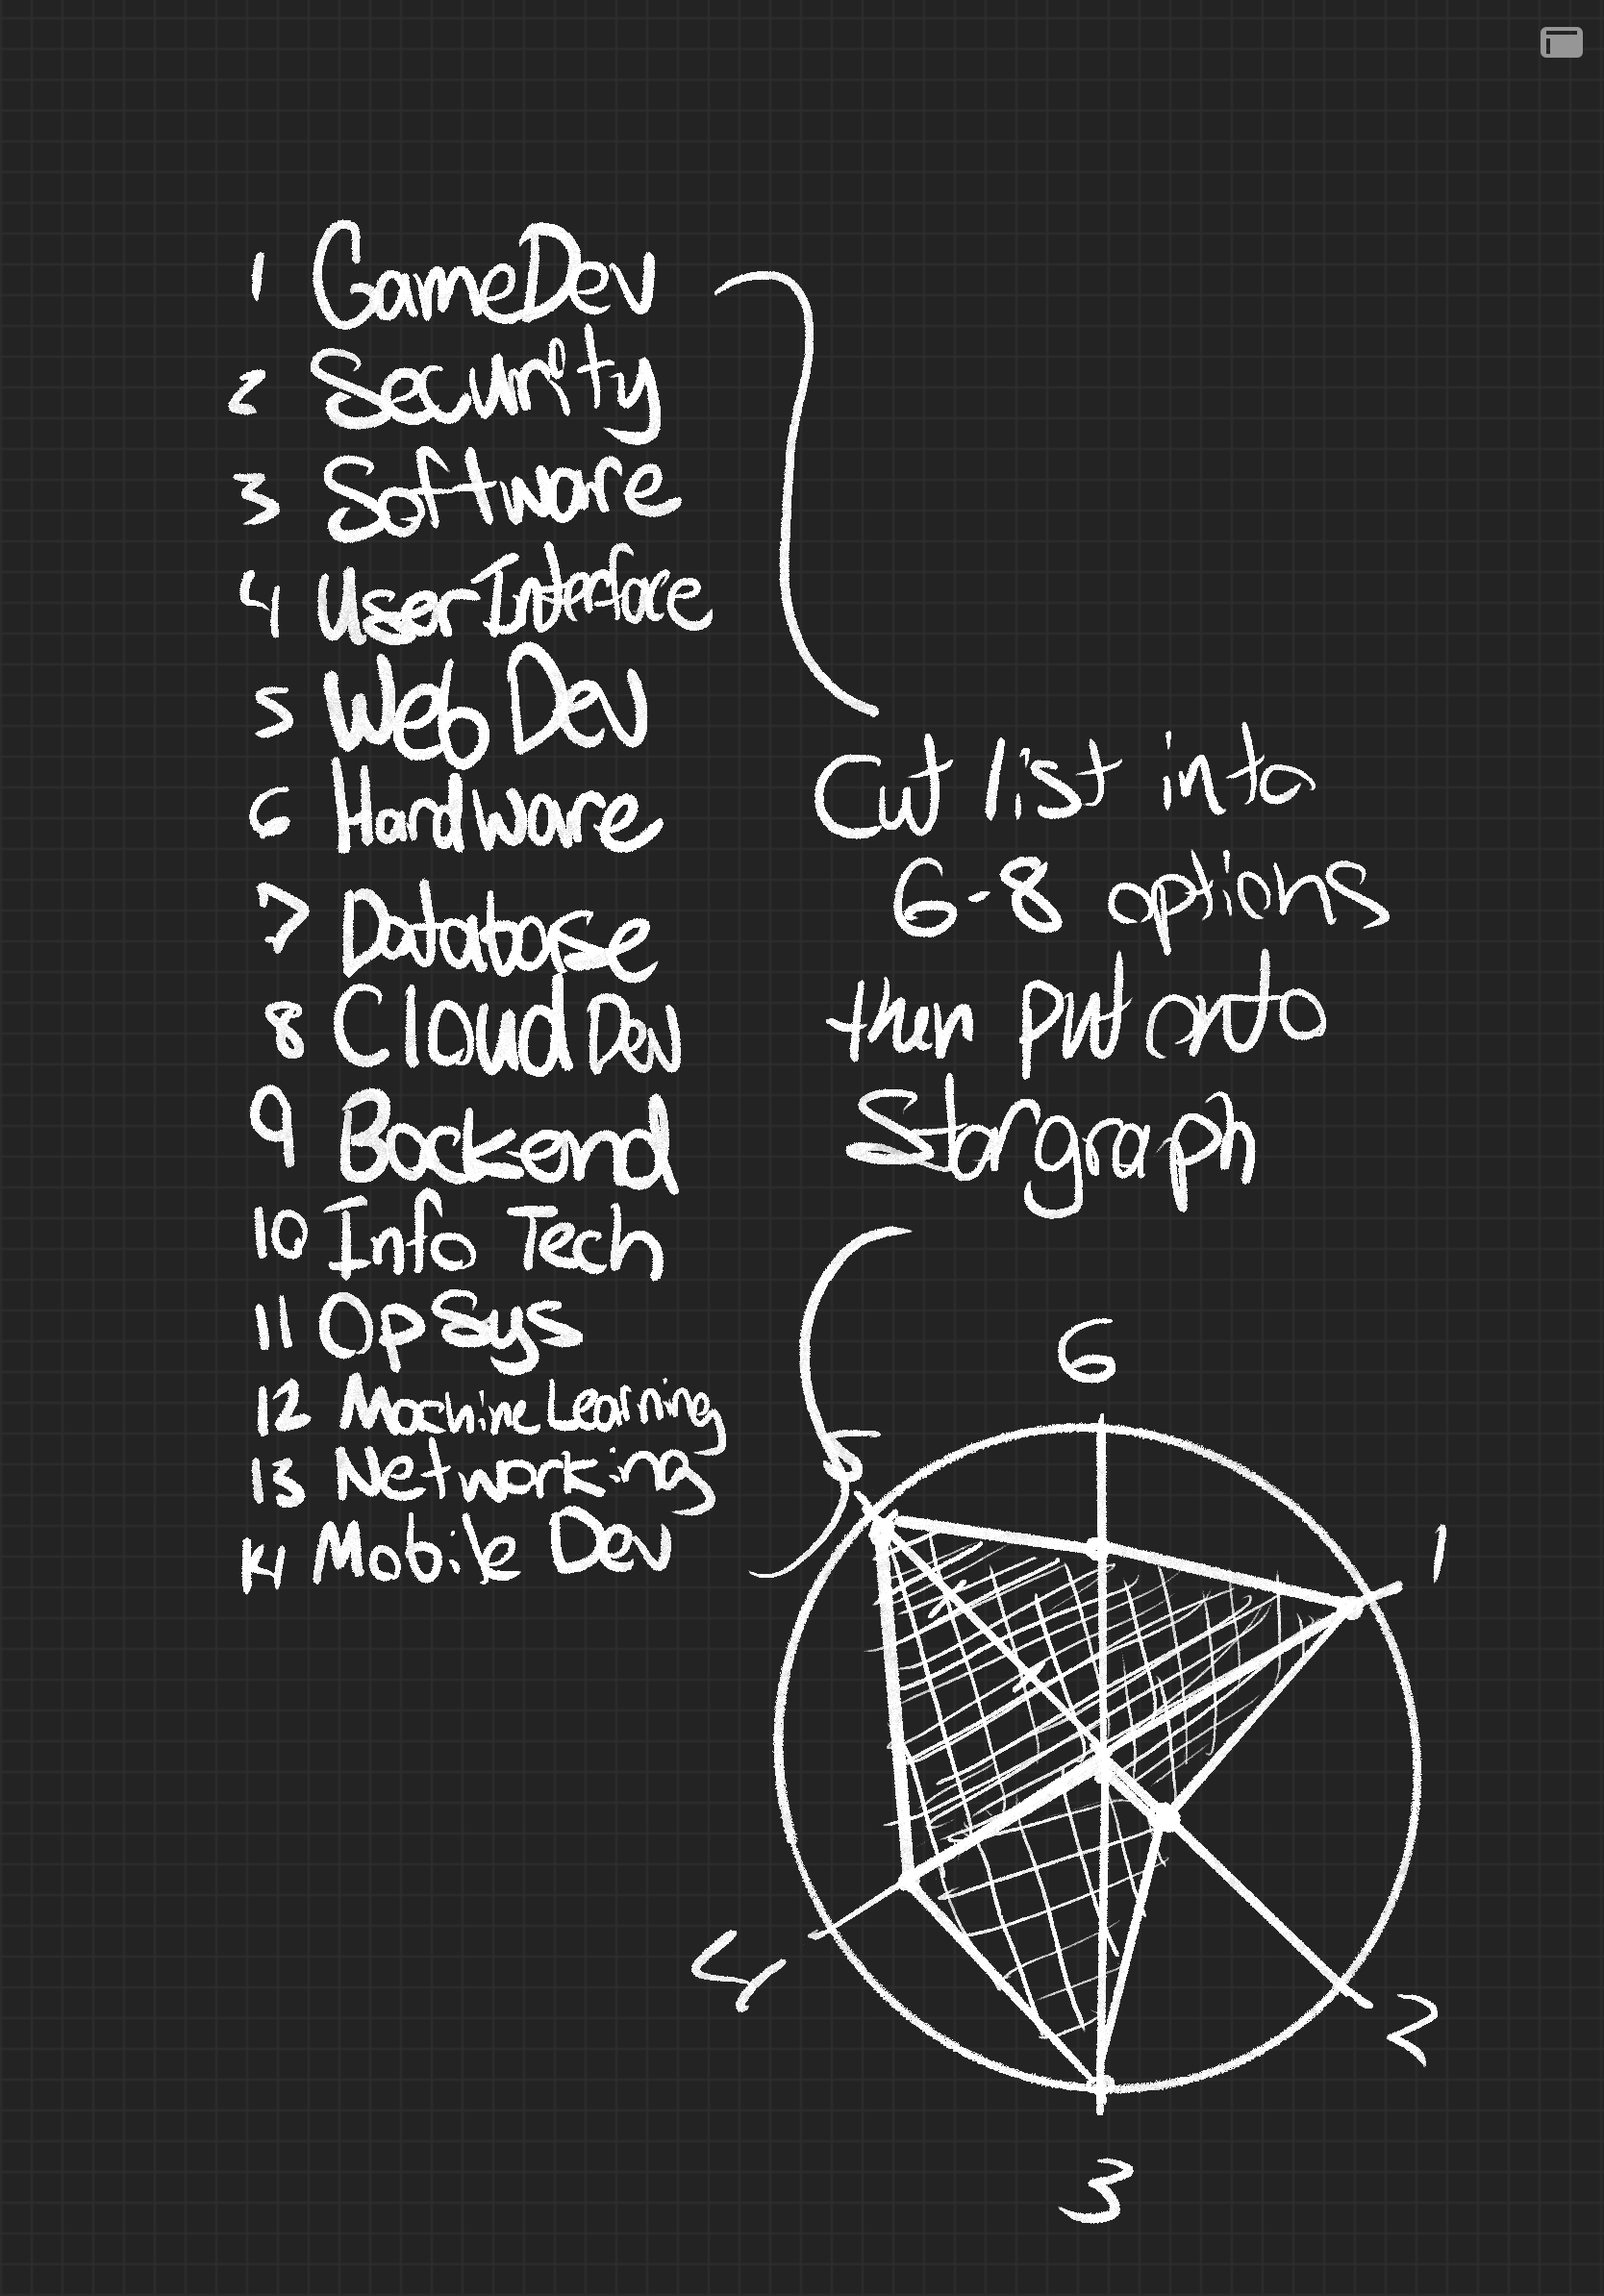 1 GameDev
2 Security
3 Software
4 UserInterface
5 Web Dev
6 Hardware
7 Database
8 Cloud Dev
9 Backend
10 Info Tech
11 OpSys
12 Machine Learning
13 Networking
14 Mobile Dev
Cut list into
6-8 options
then put onto
Stargraph
6
5
1
4
2
3